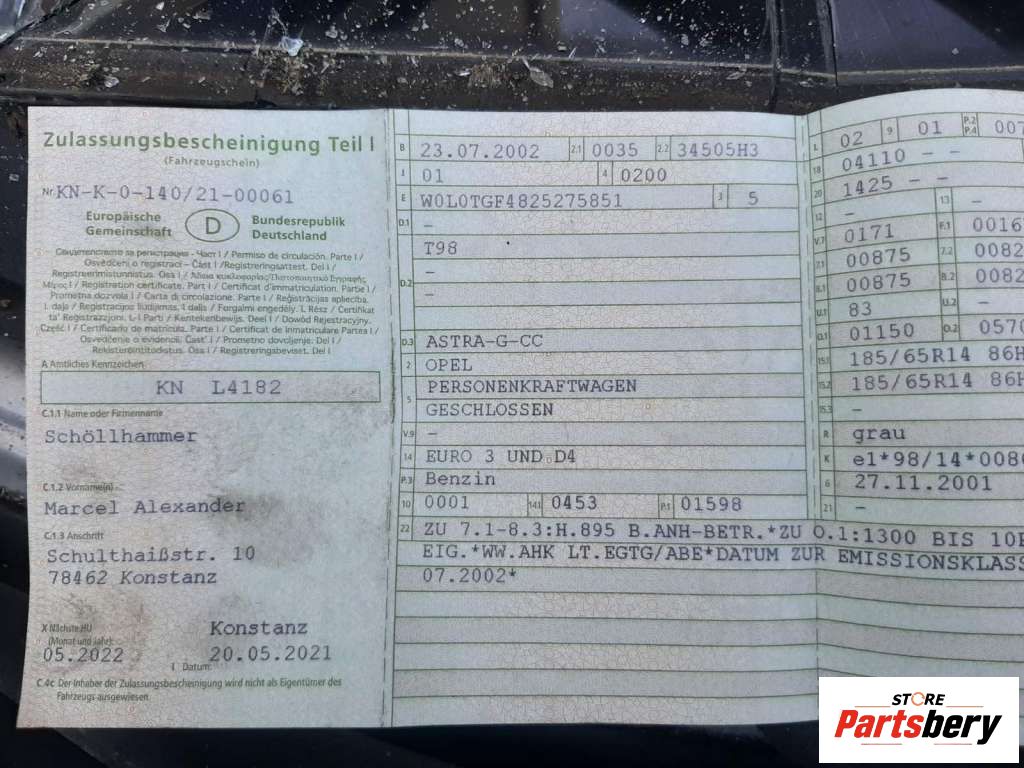 Zulassungsbescheinigung Teil I
(Fahrzeugschein)
Nr. KN-K-0-140/21-00061
Europäische Gemeinschaft
D
Bundesrepublik Deutschland
Permiso de circulación. Parte I /
Osvědčení o registraci – Část I / Registreringsattest. Del I /
Registreerimistunnistus. Osa I /
Registration certificate. Part I / Certificat d'immatriculation. Partie I /
Prometna dozvola I / Carta di circolazione. Parte I / Reģistrācijas apliecība.
I. daļa / Registracijos liudijimas. I dalis / Forgalmi engedély. I. Rész / Ċertifikat
ta' Reġistrazzjoni. L-I Parti / Kentekenbewijs. Deel I / Dowód Rejestracyjny.
Część I / Certificado de matrícula. Parte I / Certificat de înmatriculare Partea I /
Osvedčenie o evidencii. Časť I / Prometno dovoljenje. Del I /
Rekisteröintitodistus. Osa I / Registreringsbeviset. Del I
A Amtliches Kennzeichen
KN L4182
C.1.1 Name oder Firmenname
Schöllhammer
C.1.2 Vorname(n)
Marcel Alexander
C.1.3 Anschrift
Schulthaißstr. 10
78462 Konstanz
X Nächste HU
(Monat und Jahr)
05.2022
Konstanz
20.05.2021
I Datum:
C.4c Der Inhaber der Zulassungsbescheinigung wird nicht als Eigentümer des
Fahrzeugs ausgewiesen.
B 23.07.2002 2.1 0035 2.2 34505H3
J 01 4 0200
E W0L0TGF4825275851 3 5
D.1 –
T98
D.2 –
–
D.3 ASTRA-G-CC
2 OPEL
5 PERSONENKRAFTWAGEN
GESCHLOSSEN
V.9 –
14 EURO 3 UND D4
P.3 Benzin
10 0001 14.1 0453 P.1 01598
22 ZU 7.1-8.3:H.895 B.ANH-BETR.*ZU O.1:1300 BIS 10
EIG.*WW.AHK LT.EGTG/ABE*DATUM ZUR EMISSIONSKLASS
07.2002*
L 02 9 01 P.2 P.4 007
18 04110 – –
20 1425 – –
12 – 13 –
V.7 0171 F.1 0016
7.1 00875 7.2 0082
8.1 00875 8.2 0082
U.1 83 U.2 –
O.1 01150 O.2 0570
15.1 185/65R14 86H
15.2 185/65R14 86H
15.3 –
R grau
K e1*98/14*008
6 27.11.2001
21 –
STORE
Partsbery